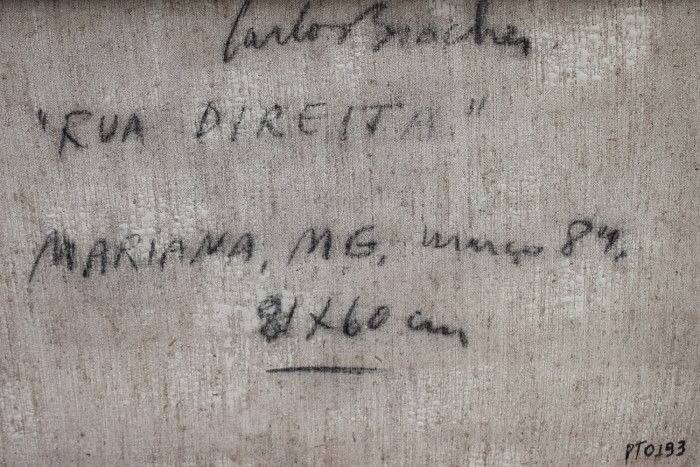 Carlos Bracher.
"RUA DIREITA"
MARIANA, MG, março 84.
81 X 60 cm
PT0193